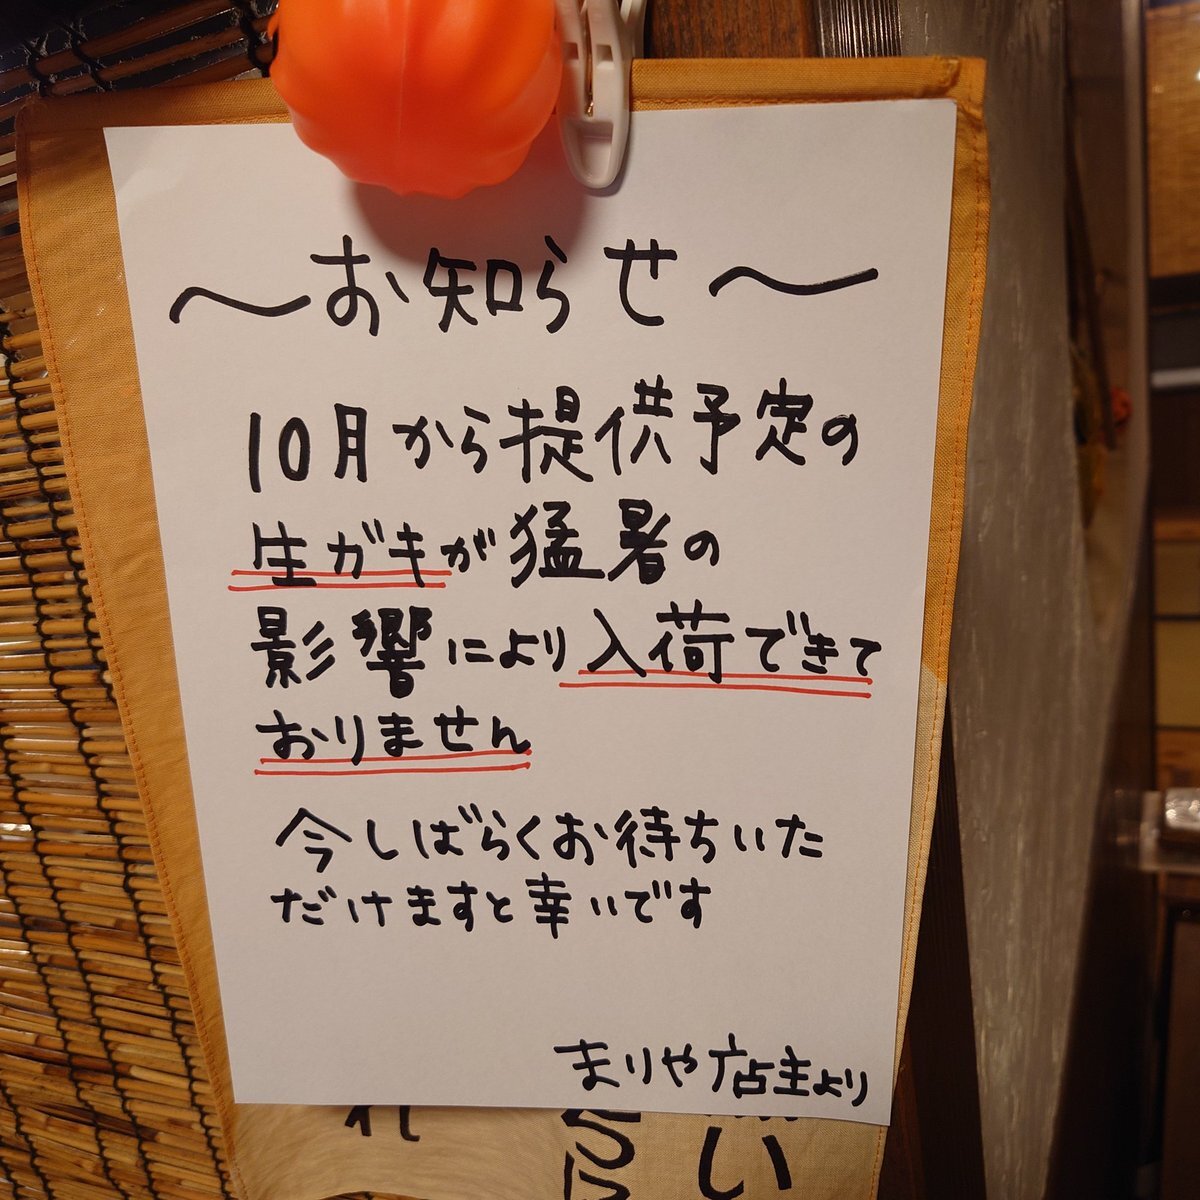 ～お知らせ～
10月から提供予定の
生ガキが猛暑の
影響により入荷できて
おりません
今しばらくお待ちいた
だけますと幸いです
まりや店主より